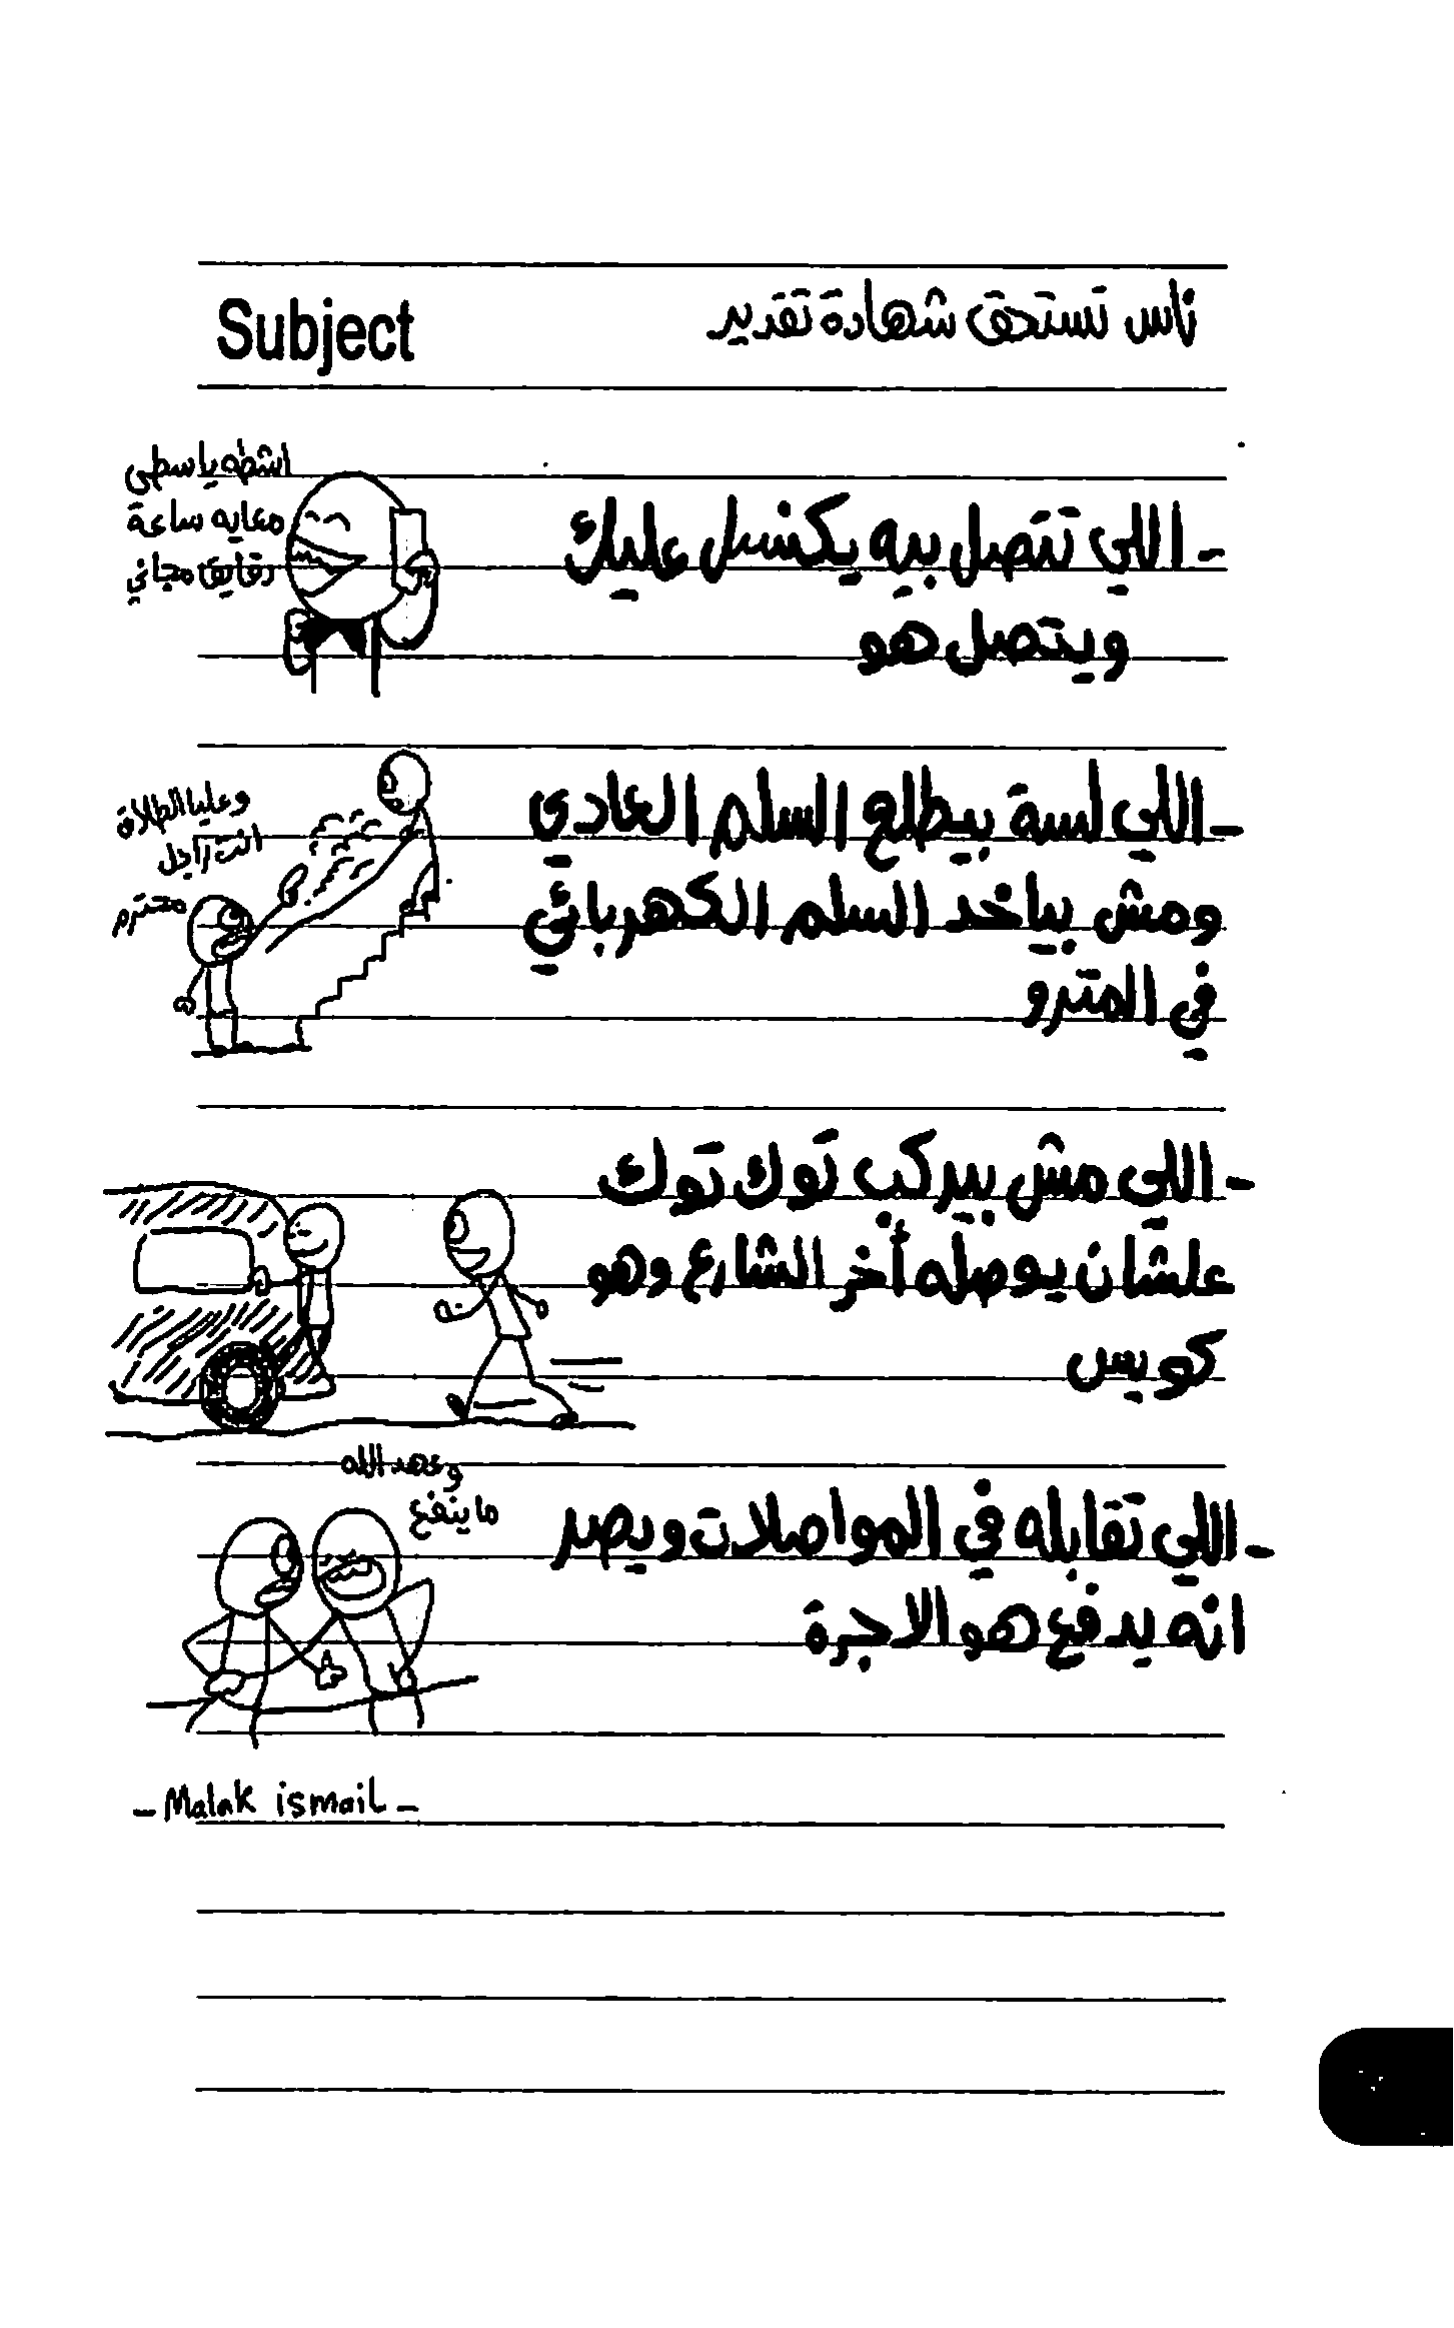 Subject
ناس تستحق شهادة تقدير
اشطه ياسطى
معايه ساعة
دقايق مجاني
- اللي تتصل بيه يكنسل عليك
ويتصل هو
وعليا الطلاق
انت راجل
محترم
- اللي لسة بيطلع السلم العادي
ومش بياخد السلم الكهربائي
في المترو
- اللي مش بيركب توك توك
علشان يوصله أخر الشارع وهو
كويس
وعهد الله
ما ينفع
- اللي تقابله في المواصلات ويصر
انه يدفع هو الاجرة
- Malak ismail -